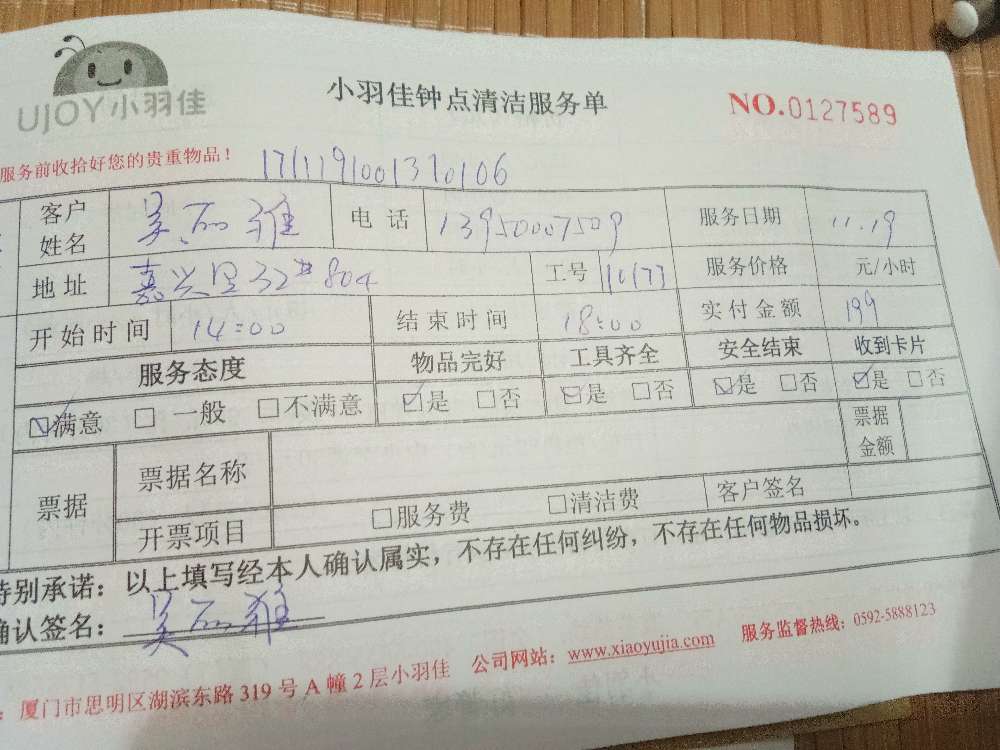 UJOY小羽佳
小羽佳钟点清洁服务单
NO.0127589
服务前收拾好您的贵重物品！
171119001370106
客户姓名 吴丽雅 电话 13950007509 服务日期 11.19
地址 嘉兴里32# 804 工号 服务价格 元/小时
开始时间 14:00 结束时间 18:00 实付金额 199
服务态度 物品完好 工具齐全 安全结束 收到卡片
☑满意 □一般 □不满意 ☑是 □否 ☑是 □否 ☑是 □否 ☑是 □否
票据 票据名称 票据金额
开票项目 □服务费 □清洁费 客户签名
特别承诺：以上填写经本人确认属实，不存在任何纠纷，不存在任何物品损坏。
确认签名：吴丽雅
：厦门市思明区湖滨东路319号A幢2层小羽佳 公司网站：www.xiaoyujia.com 服务监督热线：0592-5888123